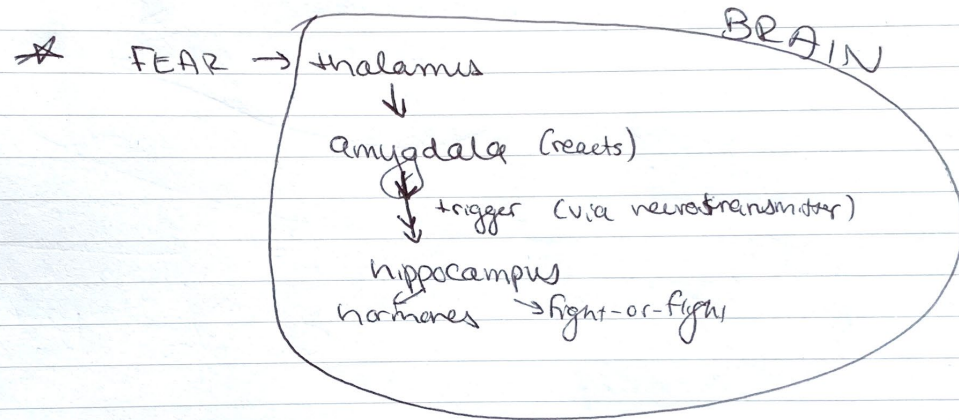 BRAIN
FEAR → thalamus
↓
amygdala (reacts)
↓ trigger (via neurotransmitter)
hippocampus
hormones → fight-or-flight